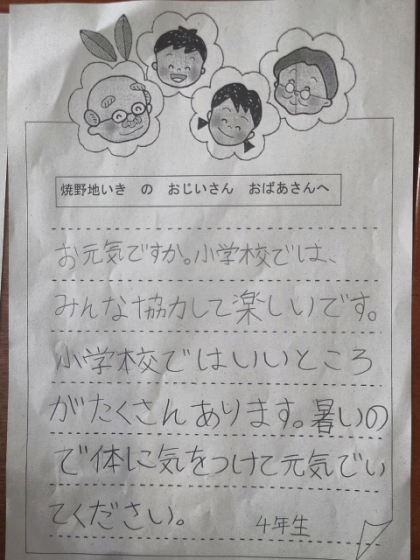 焼野地いき の おじいさん おばあさんへ
お元気ですか。小学校では、
みんな協力して楽しいです。
小学校ではいいところ
がたくさんあります。暑いの
で体に気をつけて元気でい
てください。 4年生